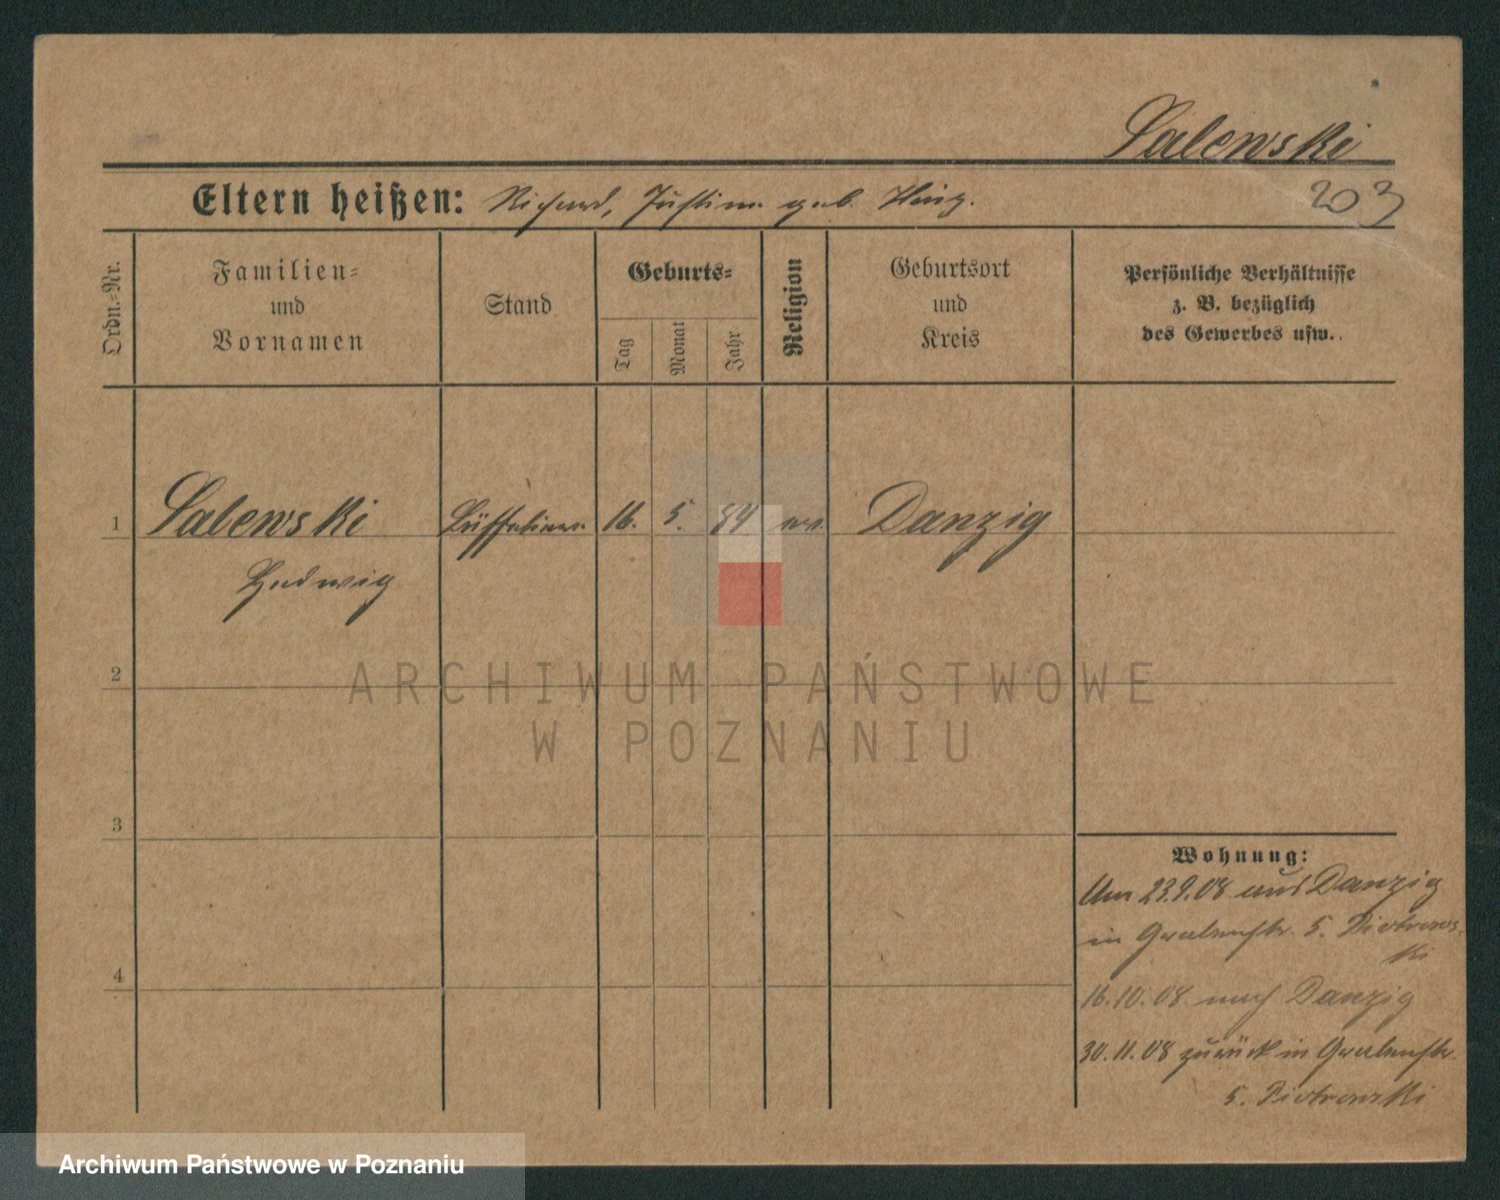 Salewski
Eltern heißen: Richard, Justine geb.
203
Ordn.-Nr.
Familien-
und
Vornamen
Stand
Geburts-
Tag
Monat
Jahr
Religion
Geburtsort
und
Kreis
Persönliche Verhältnisse
z. B. bezüglich
des Gewerbes usw..
1 Salewski Büffetiere 16. 5. 84 ev. Danzig
Hedwig
2
3
4
ARCHIWUM PAŃSTWOWE
W POZNANIU
Wohnung:
Am 23.9.08 aus Danzig
in Grabenstr. 5. Piotrows-
ki
16.10.08. nach Danzig
30.11.08 zurück in Grabenstr.
5. Piotrowski
Archiwum Państwowe w Poznaniu